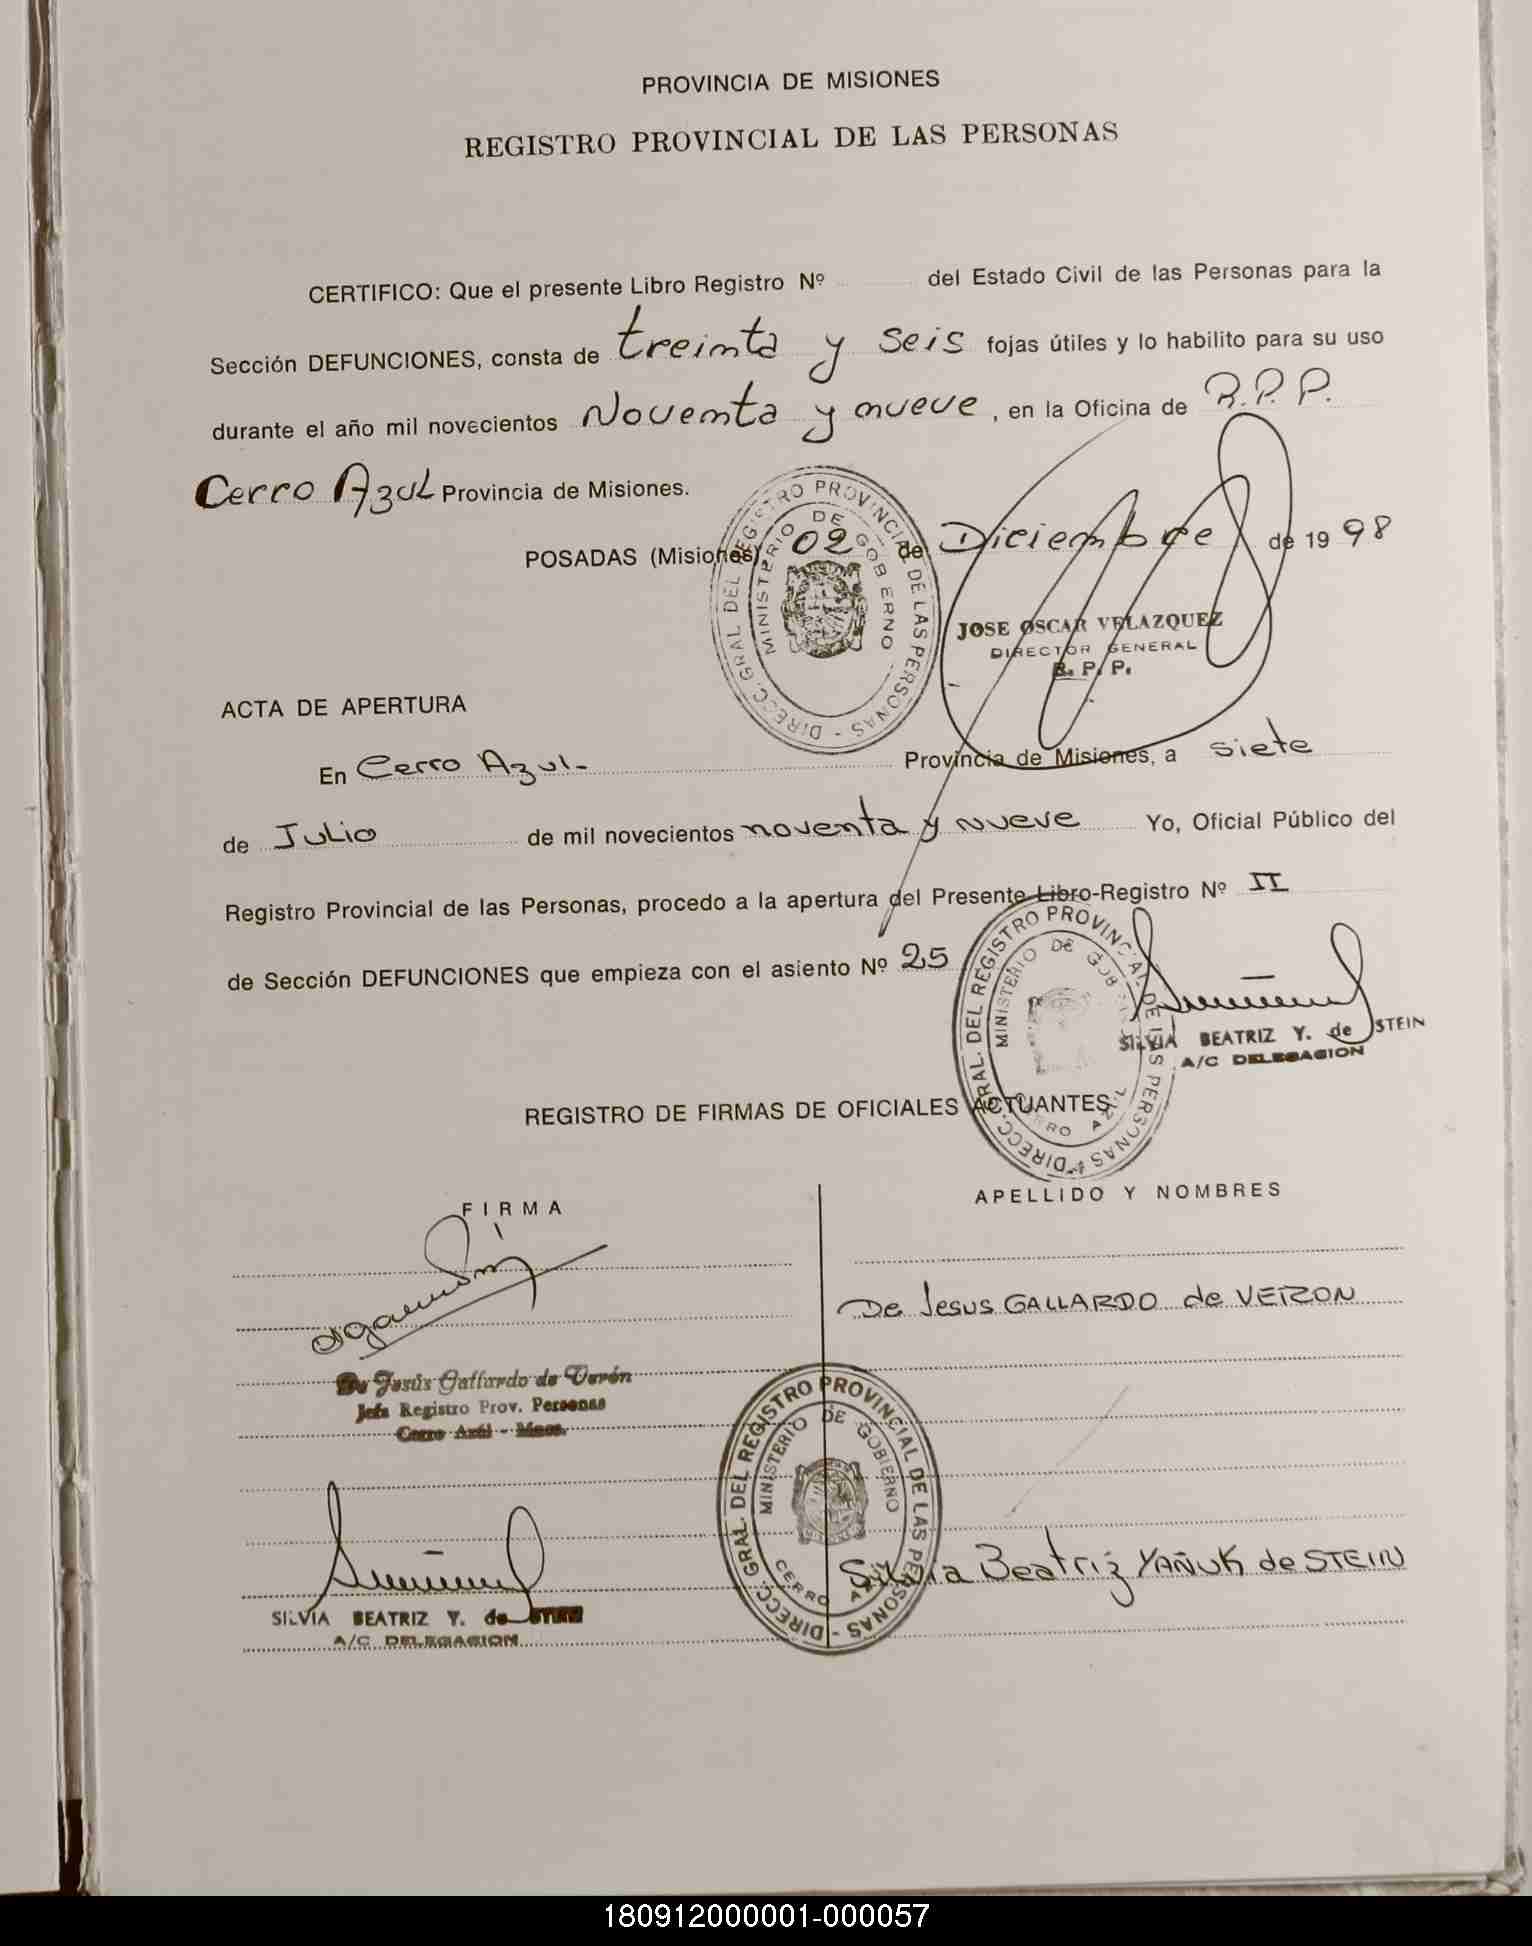 PROVINCIA DE MISIONES
REGISTRO PROVINCIAL DE LAS PERSONAS
CERTIFICO: Que el presente Libro Registro Nº del Estado Civil de las Personas para la
Sección DEFUNCIONES, consta de treinta y seis fojas útiles y lo habilito para su uso
durante el año mil novecientos Noventa y nueve, en la Oficina de R.P.P.
Cerro Azul Provincia de Misiones.
POSADAS (Misiones), 02 de Diciembre de 1998
DIRECC. GRAL. DEL REGISTRO PROVINCIAL DE LAS PERSONAS
MINISTERIO DE GOBIERNO
JOSE OSCAR VELAZQUEZ
DIRECTOR GENERAL
R. P. P.
ACTA DE APERTURA
En Cerro Azul- Provincia de Misiones, a siete
de Julio de mil novecientos noventa y nueve Yo, Oficial Público del
Registro Provincial de las Personas, procedo a la apertura del Presente Libro-Registro Nº II
de Sección DEFUNCIONES que empieza con el asiento Nº 25
DIRECC. GRAL. DEL REGISTRO PROVINCIAL DE LAS PERSONAS
MINISTERIO DE GOB
CERRO AZUL
SILVIA BEATRIZ Y. de STEIN
A/C DELEGACION
REGISTRO DE FIRMAS DE OFICIALES ACTUANTES
FIRMA
APELLIDO Y NOMBRES
De Jesus GALLARDO de VERON
De Jesús Gallardo de Verón
Jefa Registro Prov. Personas
Cerro Azúl - Mnes.
DIRECC. GRAL. DEL REGISTRO PROVINCIAL DE LAS PERSONAS
MINISTERIO DE GOBIERNO
CERRO AZUL
Silvia Beatriz YAÑUK de STEIN
SILVIA BEATRIZ Y. de STEIN
A/C DELEGACION
180912000001-000057